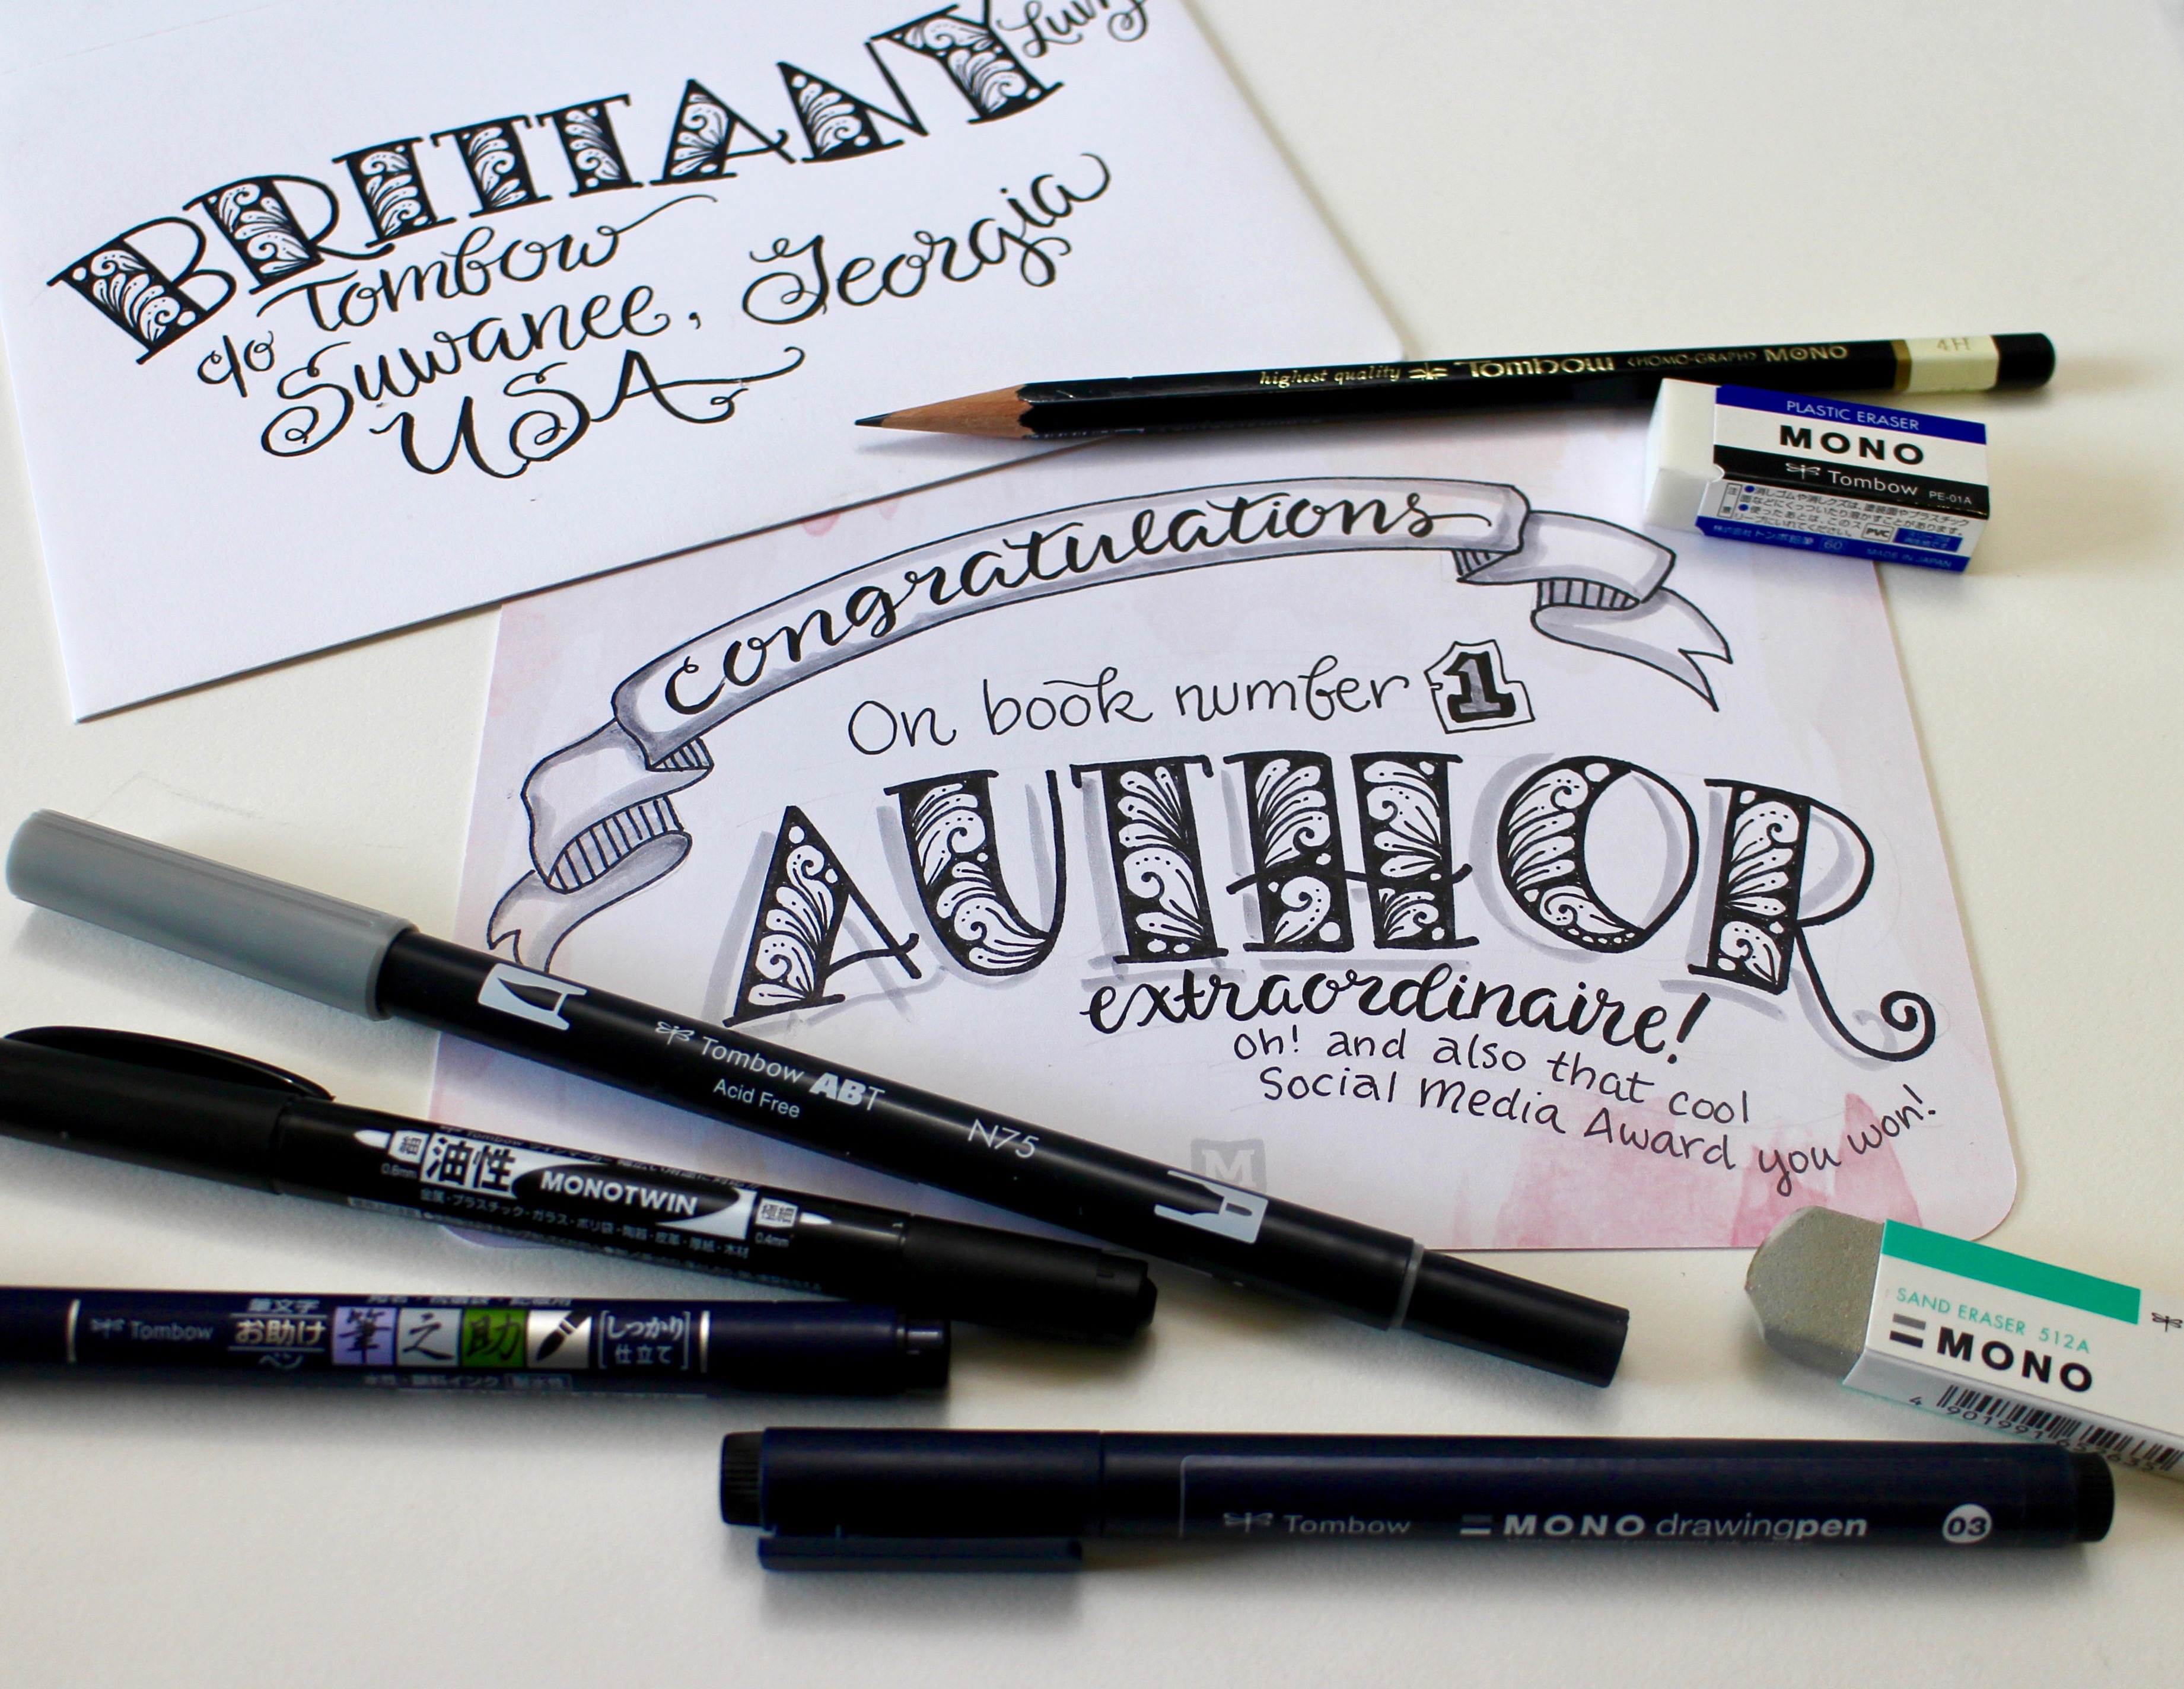 BRITTANY
c/o Tombow
Suwanee, Georgia
USA
highest quality Tombow <HOMO-GRAPH> MONO 4H
PLASTIC ERASER
MONO
Tombow PE-01A
MADE IN JAPAN
congratulations
On book number 1
AUTHOR
extraordinaire!
oh! and also that cool
Social Media Award you won!
M
Tombow ABT
Acid Free
N75
油性 MONOTWIN
細 0.8mm
極細 0.4mm
金属・プラスチック・ガラス・ポリ袋・陶器・皮革・厚紙・木材
Tombow
筆文字
お助け
ペン
筆之助
しっかり
仕立て
SAND ERASER 512A
MONO
Tombow MONO drawingpen 03